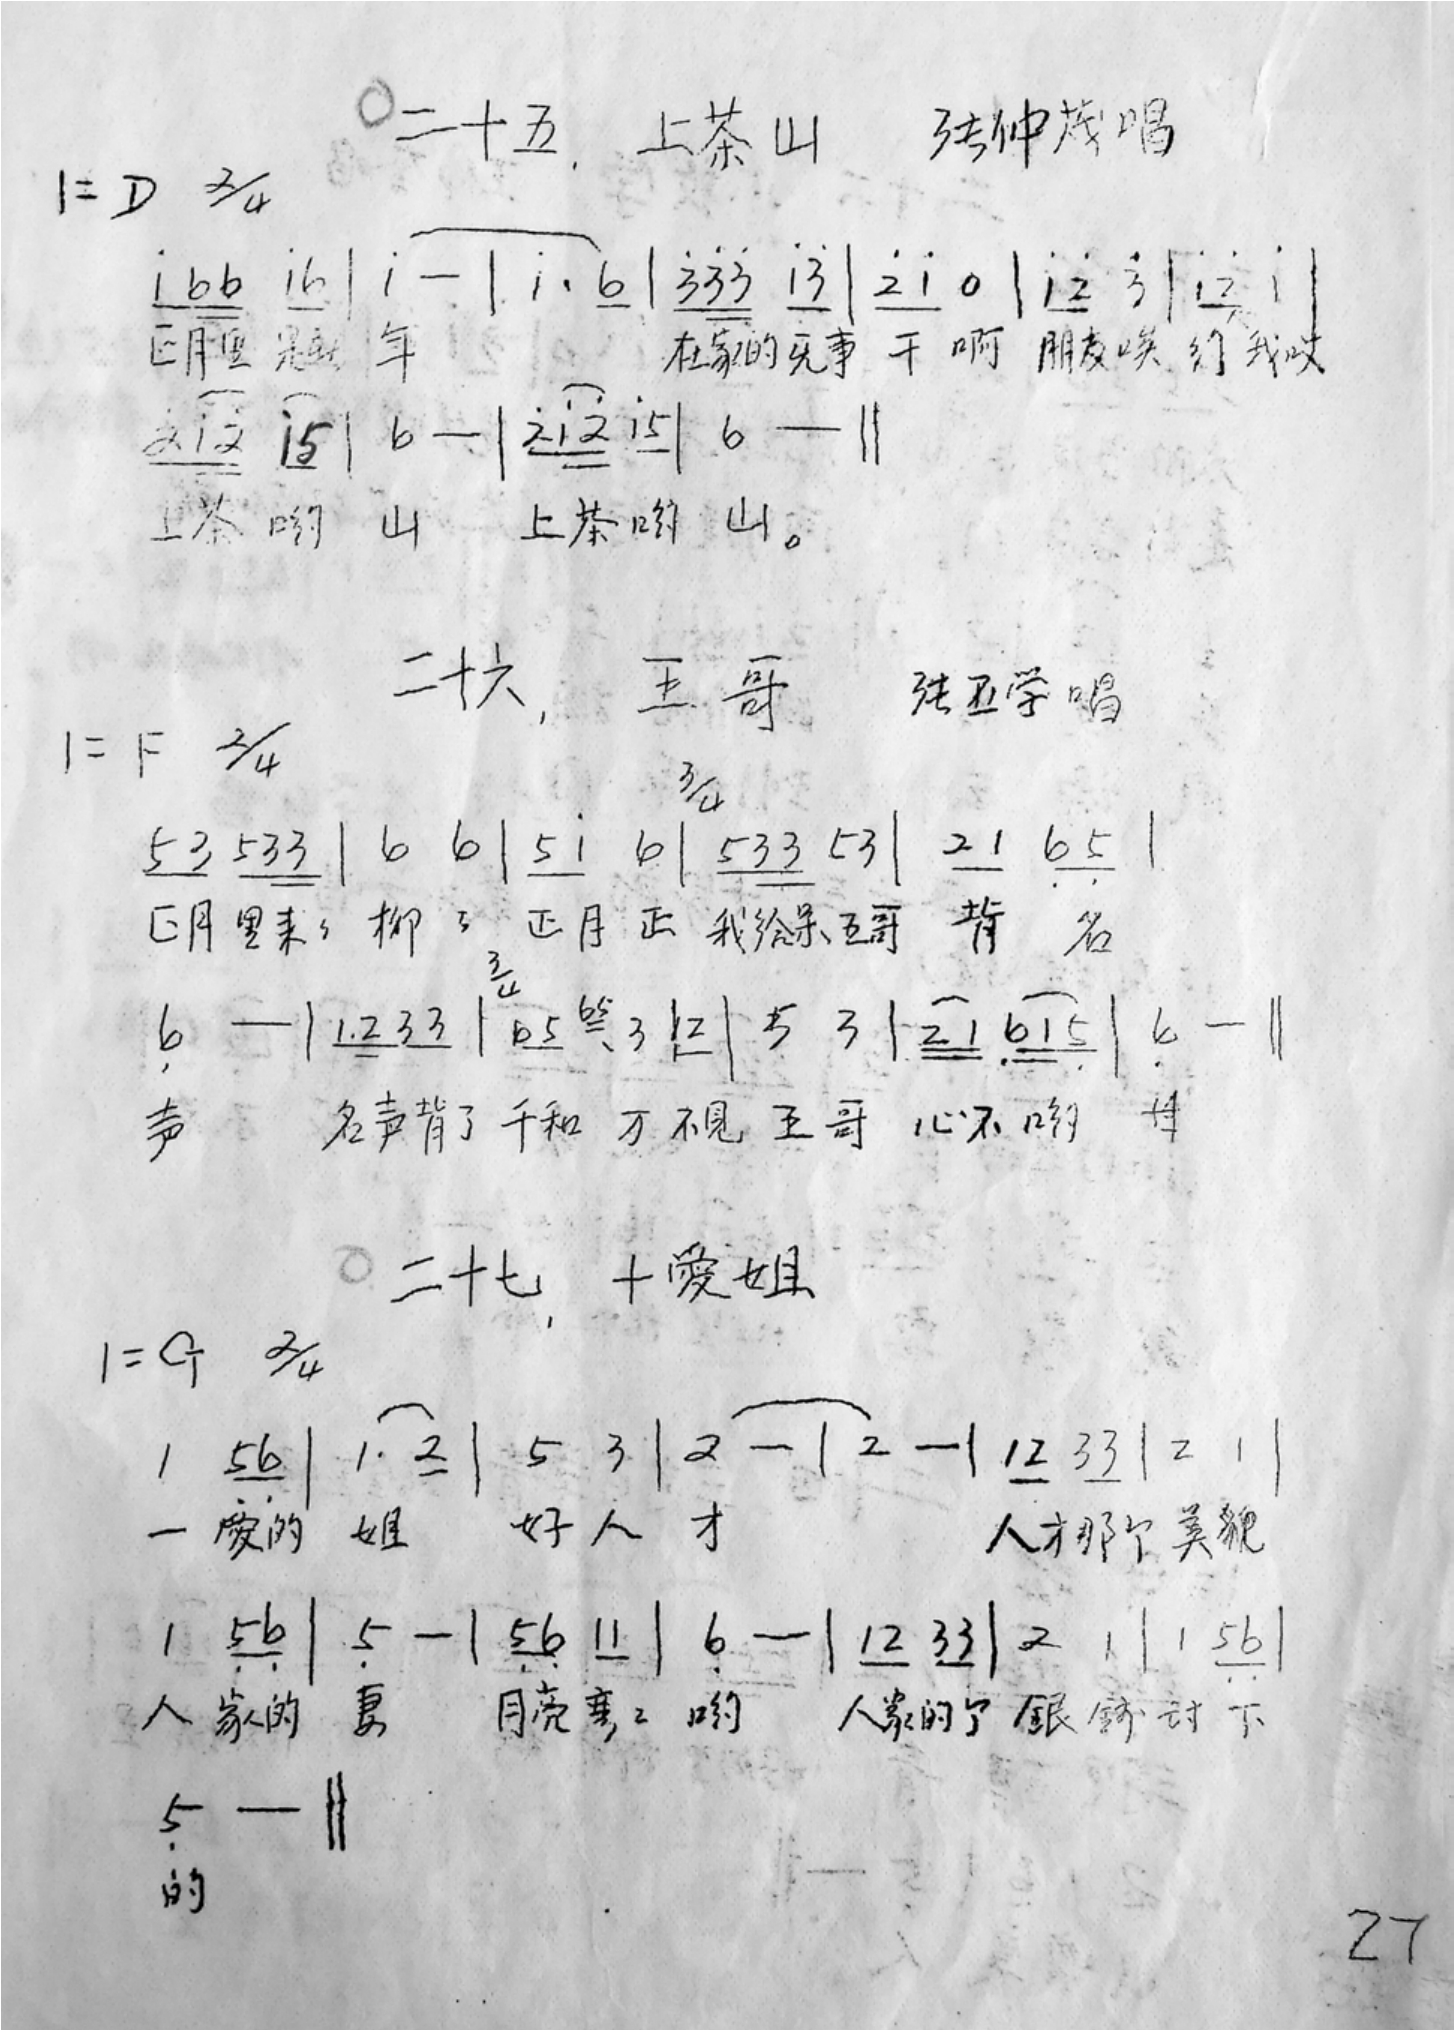 二十五、 上茶山 张仲茂唱
1=D 2/4
i66 i6 | i — | i· 6 | 333 i3 | 2i 0 | i2 3 | i2 i |
正月里是 年 在家的无事 干 啊 朋友唉 约 我哎
2i2 i5 | 6 — | 2i2 i5 | 6 — ‖
上茶 哟 山 上茶 哟 山。
二十六、 王哥 张卫学唱
1=F 2/4
3/4
53 533 | 6 6 | 5i 6 | 533 53 | 21 65 |
正月里来ミ 柳ミ 正月正 我给 王哥 背 名
3/4
6 — | 1·233 | 65 3 12 | 5 3 | 21 615 | 6 — ‖
声 名声背了 千和 万不见 王哥 心不 哟 甘
二十七、 十爱姐
1=G 2/4
1 56 | 1· 2 | 5 3 | 2 — | 2 — | 12 33 | 2 1 |
一 爱的 姐 好人 才 人才那个 美貌
1 56 | 5 — | 56 11 | 6 — | 12 33 | 2 1 | 1 56 |
人 家的 妻 月亮弯ミ 哟 人家的个 銀錢 讨 下
5 — ‖
的
27